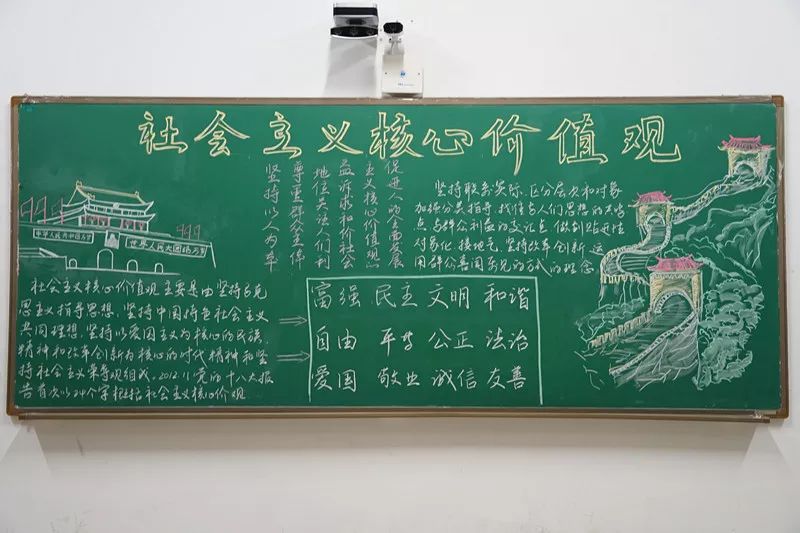 社会主义核心价值观
坚持以人为本
尊重群众主体
地位关注人们利
益诉求和价社会
主义核心价值观点
促进人的全面发展
坚持联系实际、区分层次和对象
加强分类指导,找住与人们思想的共鸣
点与群众利益的交汇点 做到贴近性
对易化 接地气,坚持改革创新,运
用群众喜闻乐见的方式的理念
中华人民共和国万岁
世界人民大团结万岁
社会主义核心价值观 主要是由坚持马克
思主义指导思想,坚持中国特色社会主义
共同理想,坚持以爱国主义为核心的民族
精神和改革创新为核心的时代精神和坚
持社会主义荣辱观组成,2012.11党的十八大报
告首次以24个字概括社会主义核心价观
富强 民主 文明 和谐
自由 平等 公正 法治
爱国 敬业 诚信 友善